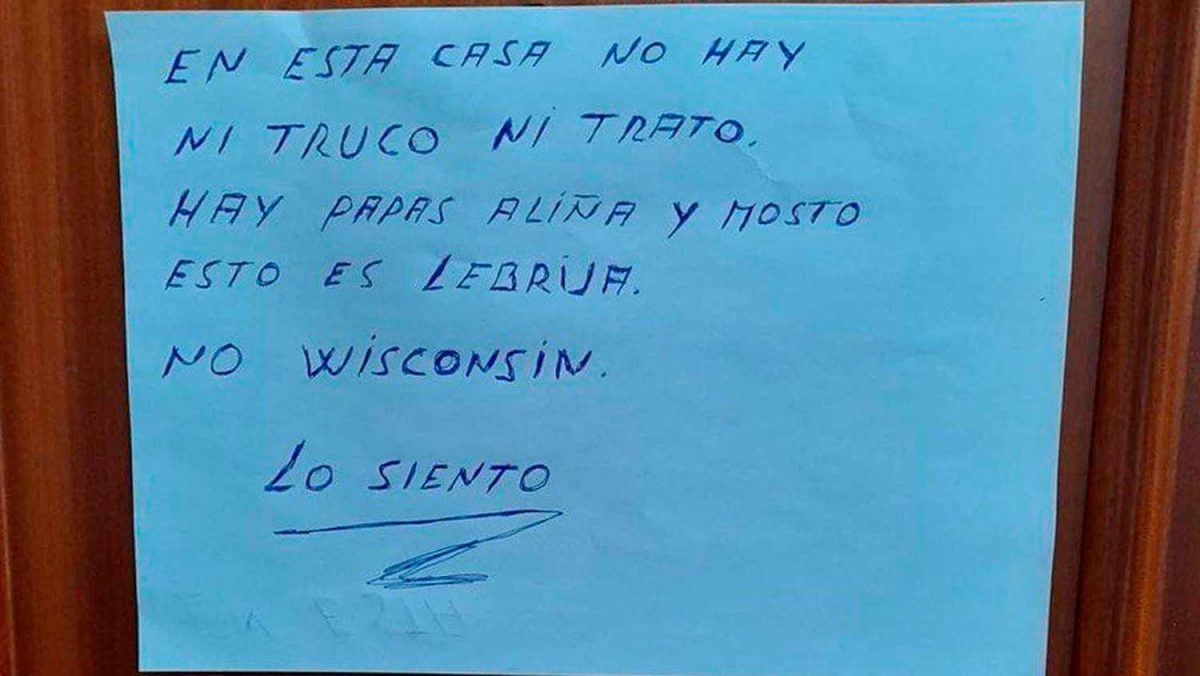 EN ESTA CASA NO HAY
NI TRUCO NI TRATO.
HAY PAPAS ALIÑA Y MOSTO
ESTO ES LEBRIJA.
NO WISCONSIN.
LO SIENTO